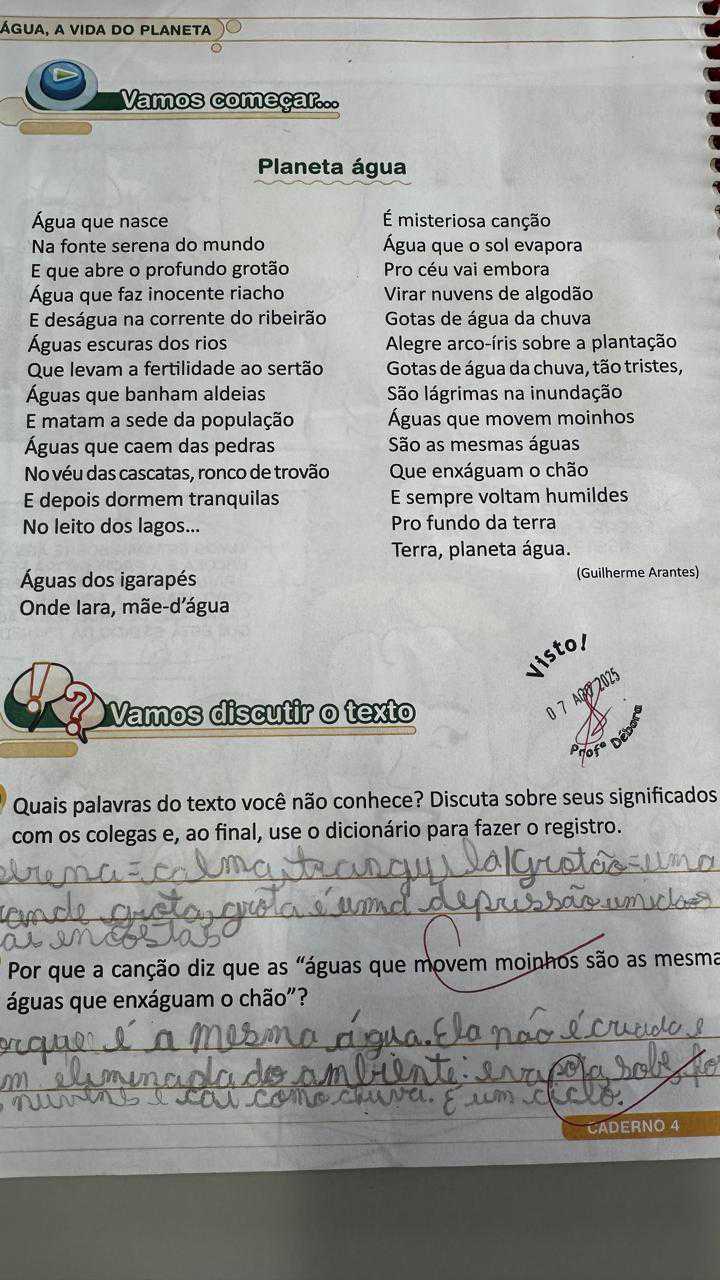 ÁGUA, A VIDA DO PLANETA
Vamos começar...
Planeta água
Água que nasce
Na fonte serena do mundo
E que abre o profundo grotão
Água que faz inocente riacho
E deságua na corrente do ribeirão
Águas escuras dos rios
Que levam a fertilidade ao sertão
Águas que banham aldeias
E matam a sede da população
Águas que caem das pedras
No véu das cascatas, ronco de trovão
E depois dormem tranquilas
No leito dos lagos...
Águas dos igarapés
Onde Iara, mãe-d'água
É misteriosa canção
Água que o sol evapora
Pro céu vai embora
Virar nuvens de algodão
Gotas de água da chuva
Alegre arco-íris sobre a plantação
Gotas de água da chuva, tão tristes,
São lágrimas na inundação
Águas que movem moinhos
São as mesmas águas
Que enxáguam o chão
E sempre voltam humildes
Pro fundo da terra
Terra, planeta água.
(Guilherme Arantes)
Visto!
07 AGO 2025
Profª Débora
Vamos discutir o texto
Quais palavras do texto você não conhece? Discuta sobre seus significados
com os colegas e, ao final, use o dicionário para fazer o registro.
erena = calma, tranquila|Grotão = uma
rande grota, grota é uma depressão umida
as encostas
Por que a canção diz que as "águas que movem moinhos são as mesma
águas que enxáguam o chão"?
orque é a mesma água. Ela não é criada e
m eliminada do ambiente: evapora sobe, fo
nuvens e cai como chuva. É um ciclo.
CADERNO 4